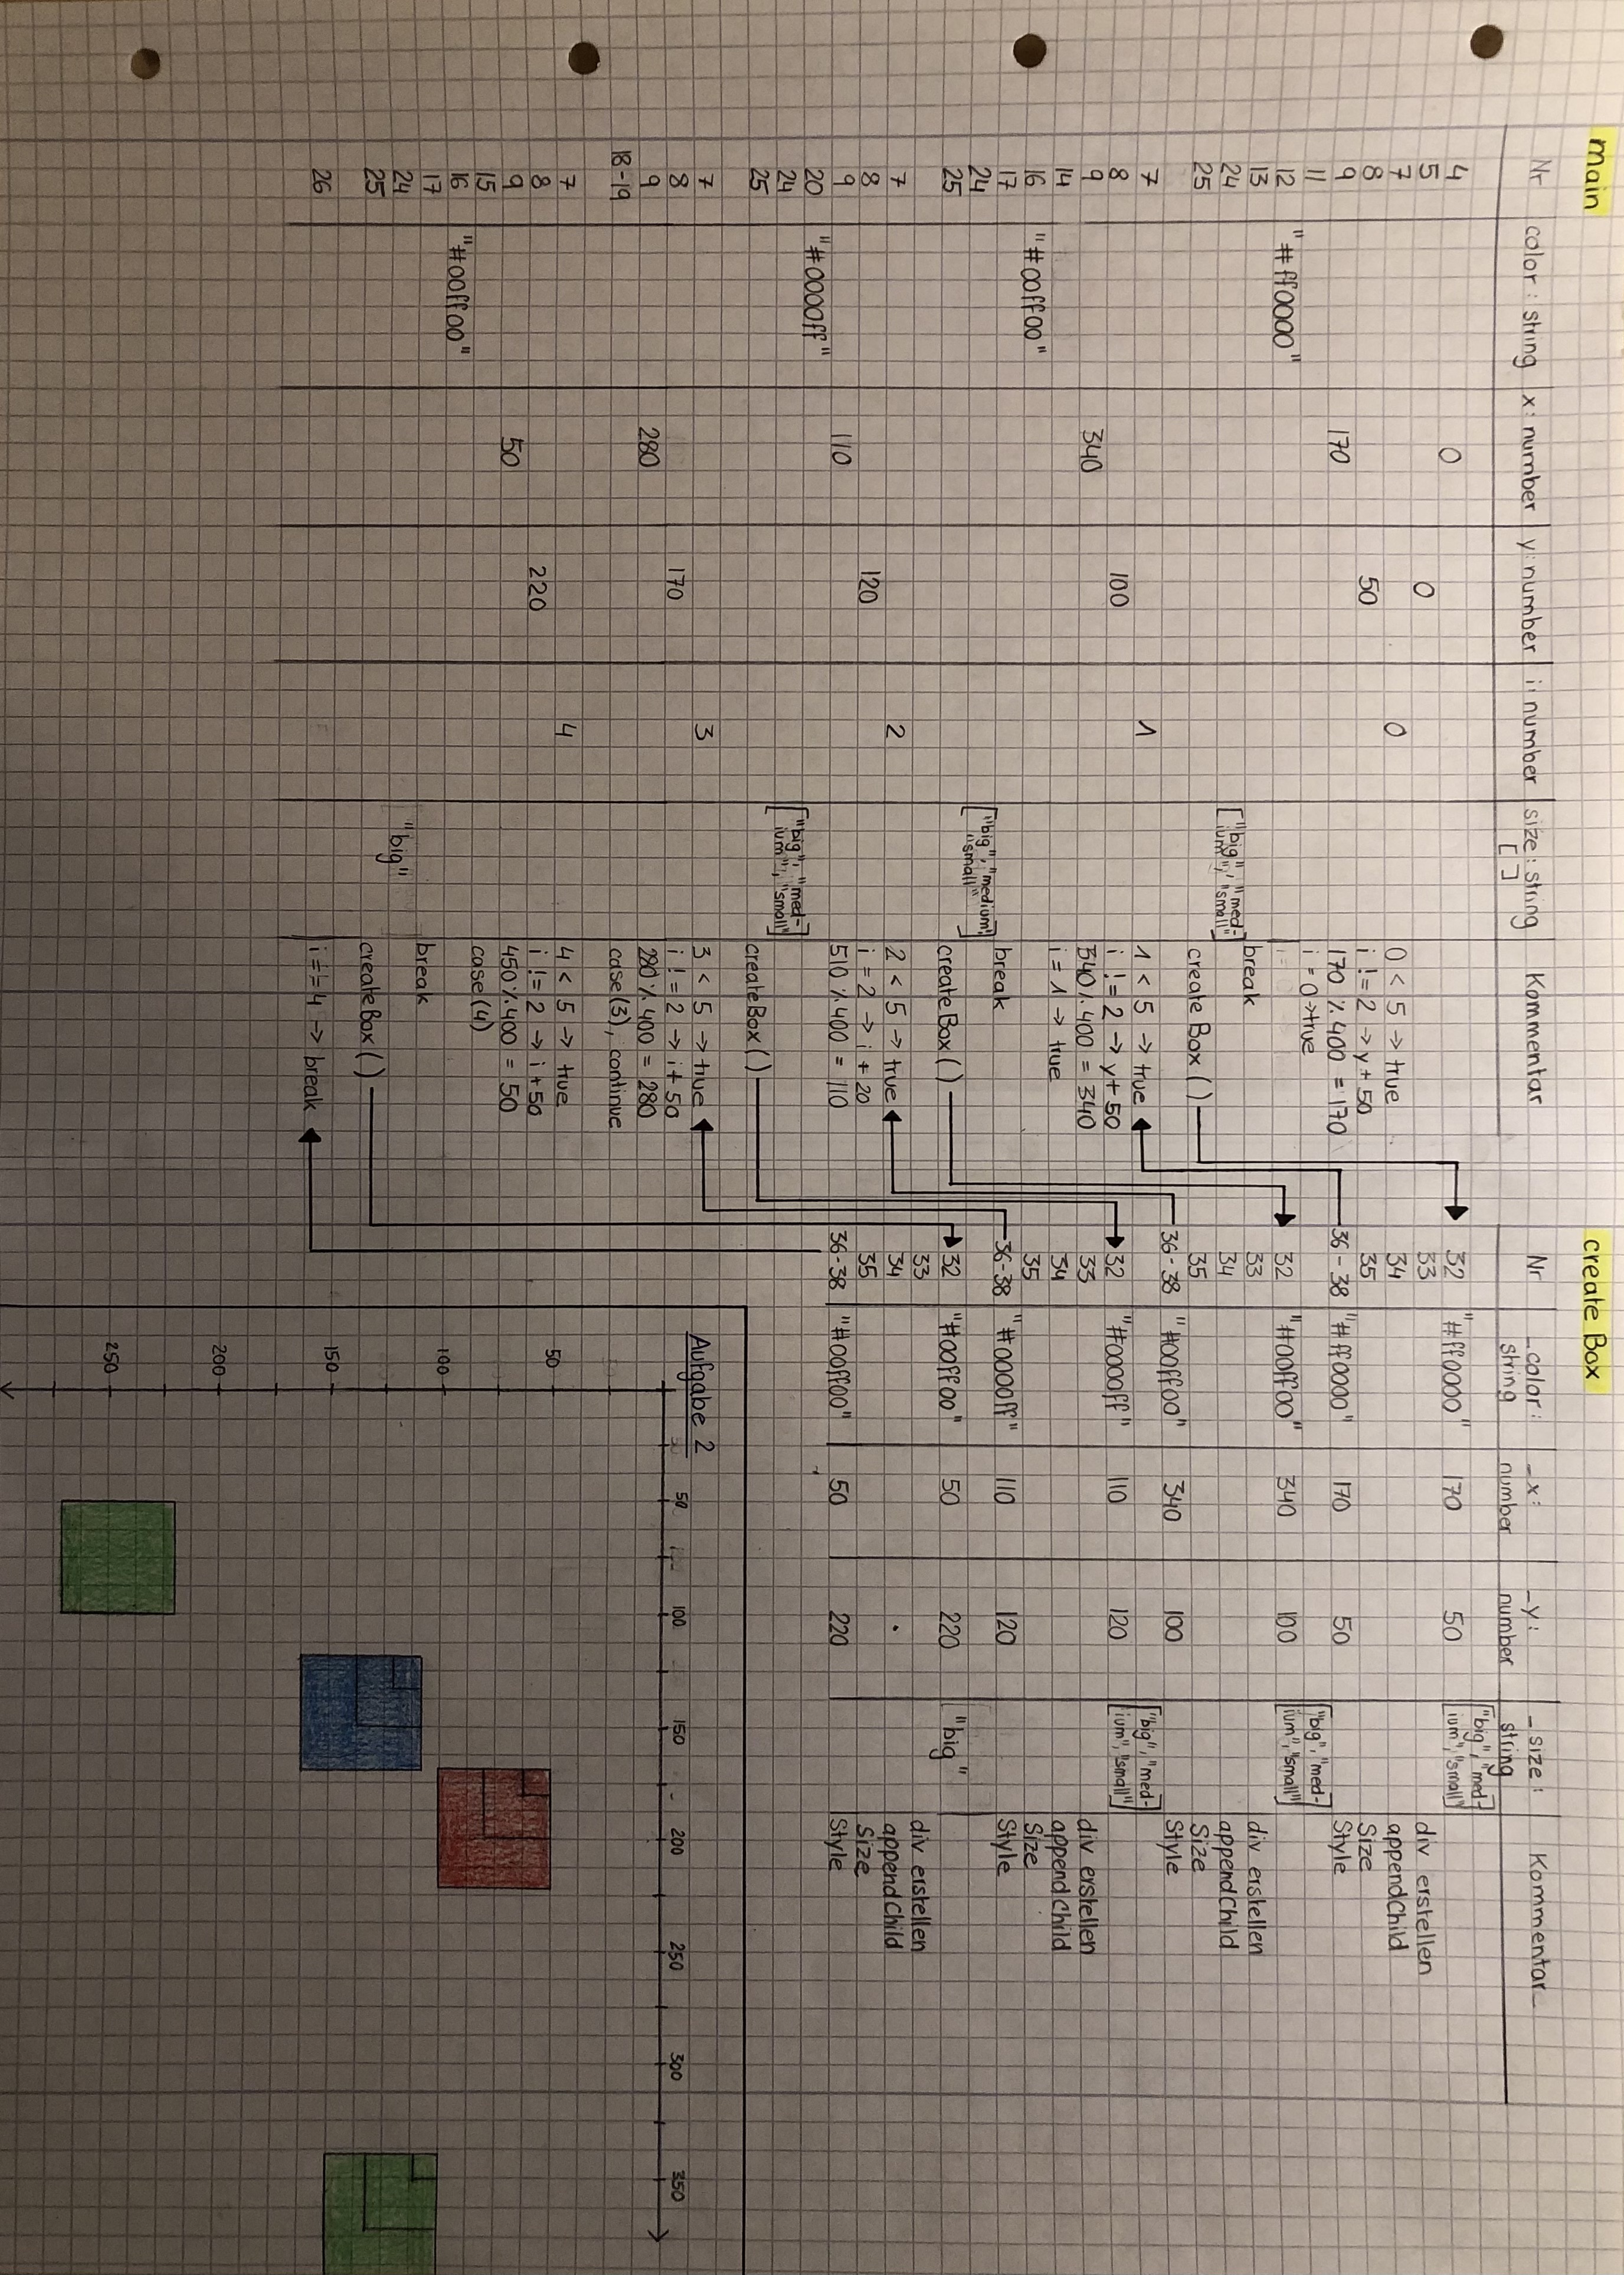 main
Nr color: string x: number y: number i: number size: string [ ] Kommentar
4 0
5 0
7 0 0 < 5 → true
8 50 i != 2 → y + 50
9 170 170 % 400 = 170
11 i = 0 → true
12 "#ff0000"
13 break
24 ["big", "med-
ium", "small"]
25 createBox ( )
7 1 1 < 5 → true
8 100 i != 2 → y + 50
9 340 340 % 400 = 340
14 i = 1 → true
16 "#00ff00"
17 break
24 ["big", "medium",
"small"]
25 createBox ( )
7 2 2 < 5 → true
8 120 i = 2 → i + 20
9 110 510 % 400 = 110
20 "#0000ff"
24 ["big", "med-
ium", "small"]
25 createBox ( )
7 3 3 < 5 → true
8 170 i != 2 → i + 50
9 280 280 % 400 = 280
18-19 case (3), continue
7 4 4 < 5 → true
8 220 i != 2 → i + 50
9 50 450 % 400 = 50
15 case (4)
16 "#00ff00"
17 break
24 "big"
25 createBox ( )
26 i == 4 → break
create Box
Nr _color: string _x: number _y: number _size: string Kommentar
32 "#ff0000" 170 50 ["big", "med-
ium", "small"]
33 div erstellen
34 appendChild
35 Size
36-38 "#ff0000" 170 50 Style
32 "#00ff00" 340 100 ["big", "med-
ium", "small"]
33 div erstellen
34 appendChild
35 Size
36-38 "#00ff00" 340 100 Style
32 "#0000ff" 110 120 ["big", "med-
ium", "small"]
33 div erstellen
34 appendChild
35 Size
36-38 "#0000ff" 110 120 Style
32 "#00ff00" 50 220 "big"
33 div erstellen
34 appendChild
35 Size
36-38 "#00ff00" 50 220 Style
Aufgabe 2
50 100 150 200 250 300 350
50
100
150
200
250